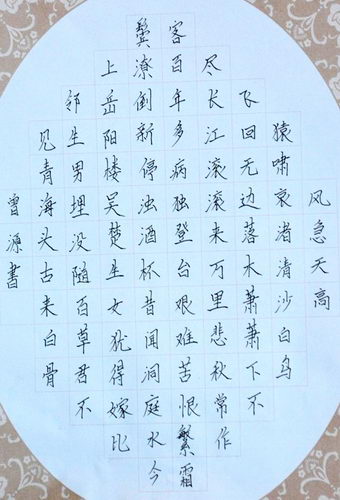 风急天高
猿啸哀渚清沙白鸟
飞回无边落木萧萧下不
尽长江滚滚来万里悲秋常作
客百年多病独登台艰难苦恨繁霜
鬓潦倒新停浊酒杯昔闻洞庭水今
上岳阳楼吴楚生女犹得嫁比
邻生男埋没随百草君不
见青海头古来白骨
曾源書